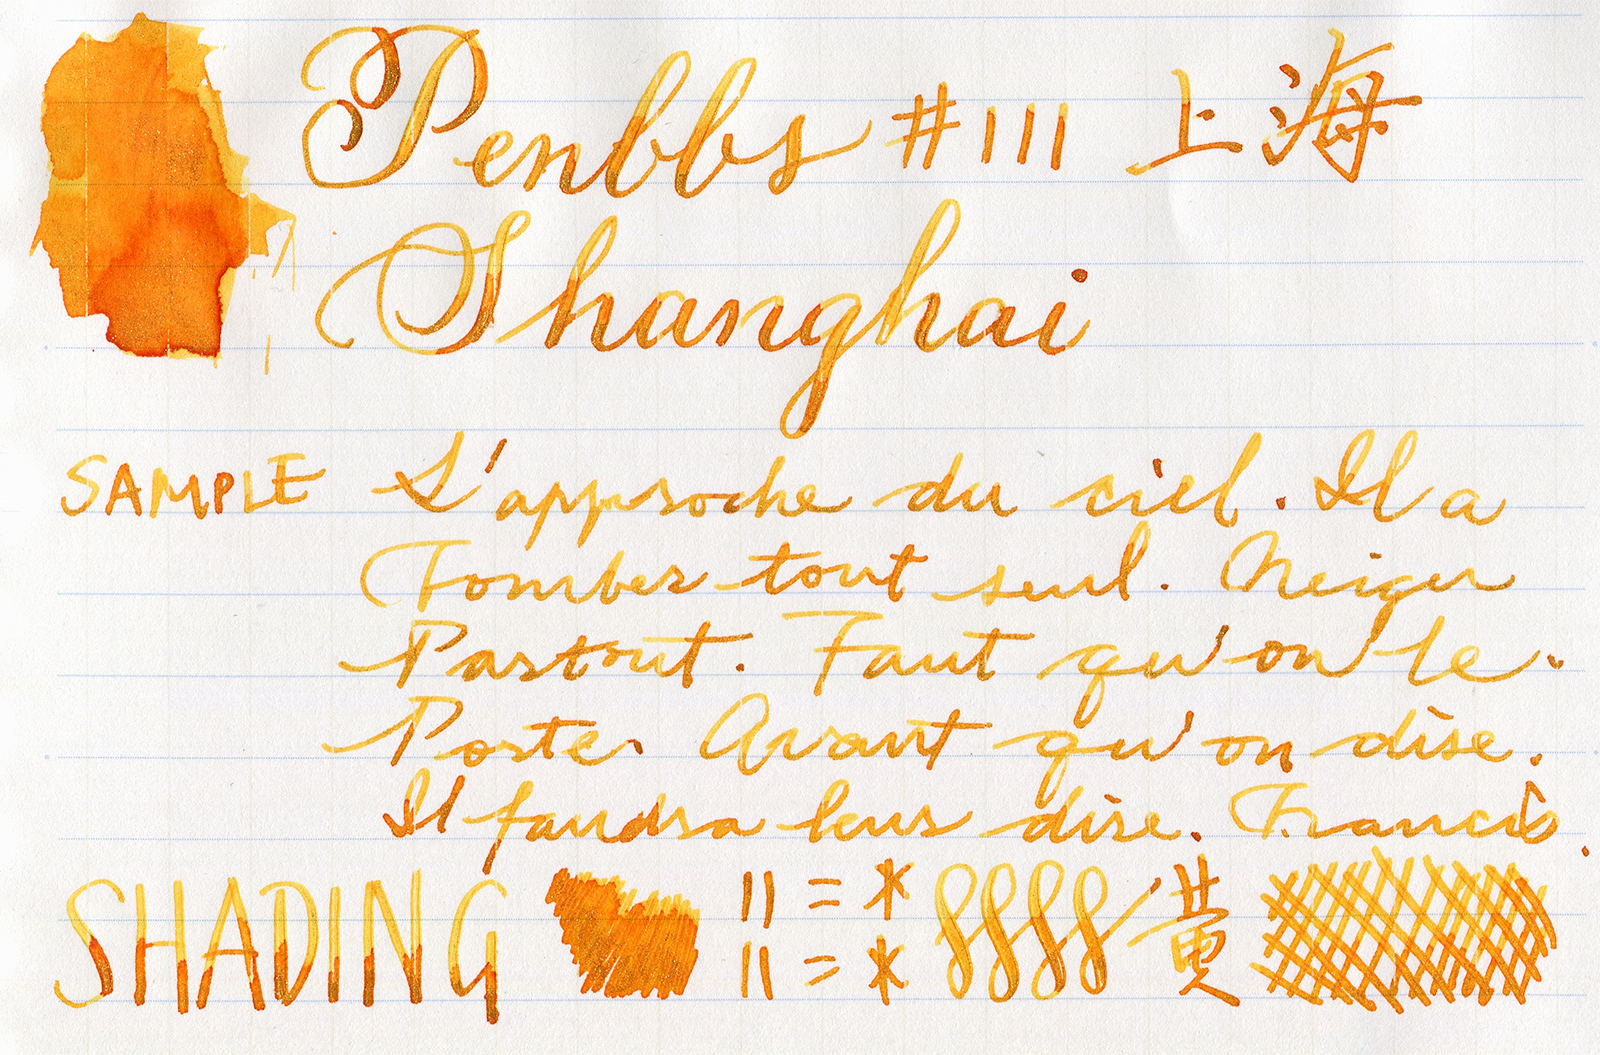 Penbbs #111 上海
Shanghai
SAMPLE L'approche du ciel. Il a
Tomber tout seul. Neiger
Partout. Faut qu'on le.
Porte. Avant qu'on dise.
Il faudra leur dire. Francis.
SHADING 11 = * 黄
11 = *